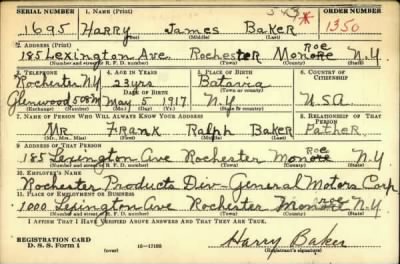 SERIAL NUMBER 1. NAME (Print) ORDER NUMBER
1695 Harry James Baker 1350
(First) (Middle) (Last)
2. ADDRESS (Print)
185 Lexington Ave Rochester Monroe N.Y
(Number and street or R. F. D. number) (Town) (County) (State)
3. TELEPHONE 4. AGE IN YEARS 5. PLACE OF BIRTH 6. COUNTRY OF CITIZENSHIP
Rochester N.Y 23 yrs Batavia
DATE OF BIRTH (Town or county)
Glenwood 508M May 5 1917 N.Y U.S.A
(Exchange) (Number) (Mo.) (Day) (Yr.) (State or country)
7. NAME OF PERSON WHO WILL ALWAYS KNOW YOUR ADDRESS 8. RELATIONSHIP OF THAT PERSON
Mr Frank Ralph Baker Father
(Mr., Mrs., Miss) (First) (Middle) (Last)
9. ADDRESS OF THAT PERSON
185 Lexington Ave Rochester Monroe N.Y
(Number and street or R. F. D. number) (Town) (County) (State)
10. EMPLOYER'S NAME
Rochester Products Div - General Motors Corp
11. PLACE OF EMPLOYMENT OR BUSINESS
1000 Lexington Ave Rochester Monroe N.Y
(Number and street or R. F. D. number) (Town) (County) (State)
I AFFIRM THAT I HAVE VERIFIED ABOVE ANSWERS AND THAT THEY ARE TRUE.
REGISTRATION CARD
D. S. S. Form 1 16-17105 Harry Baker
(Registrant's signature)